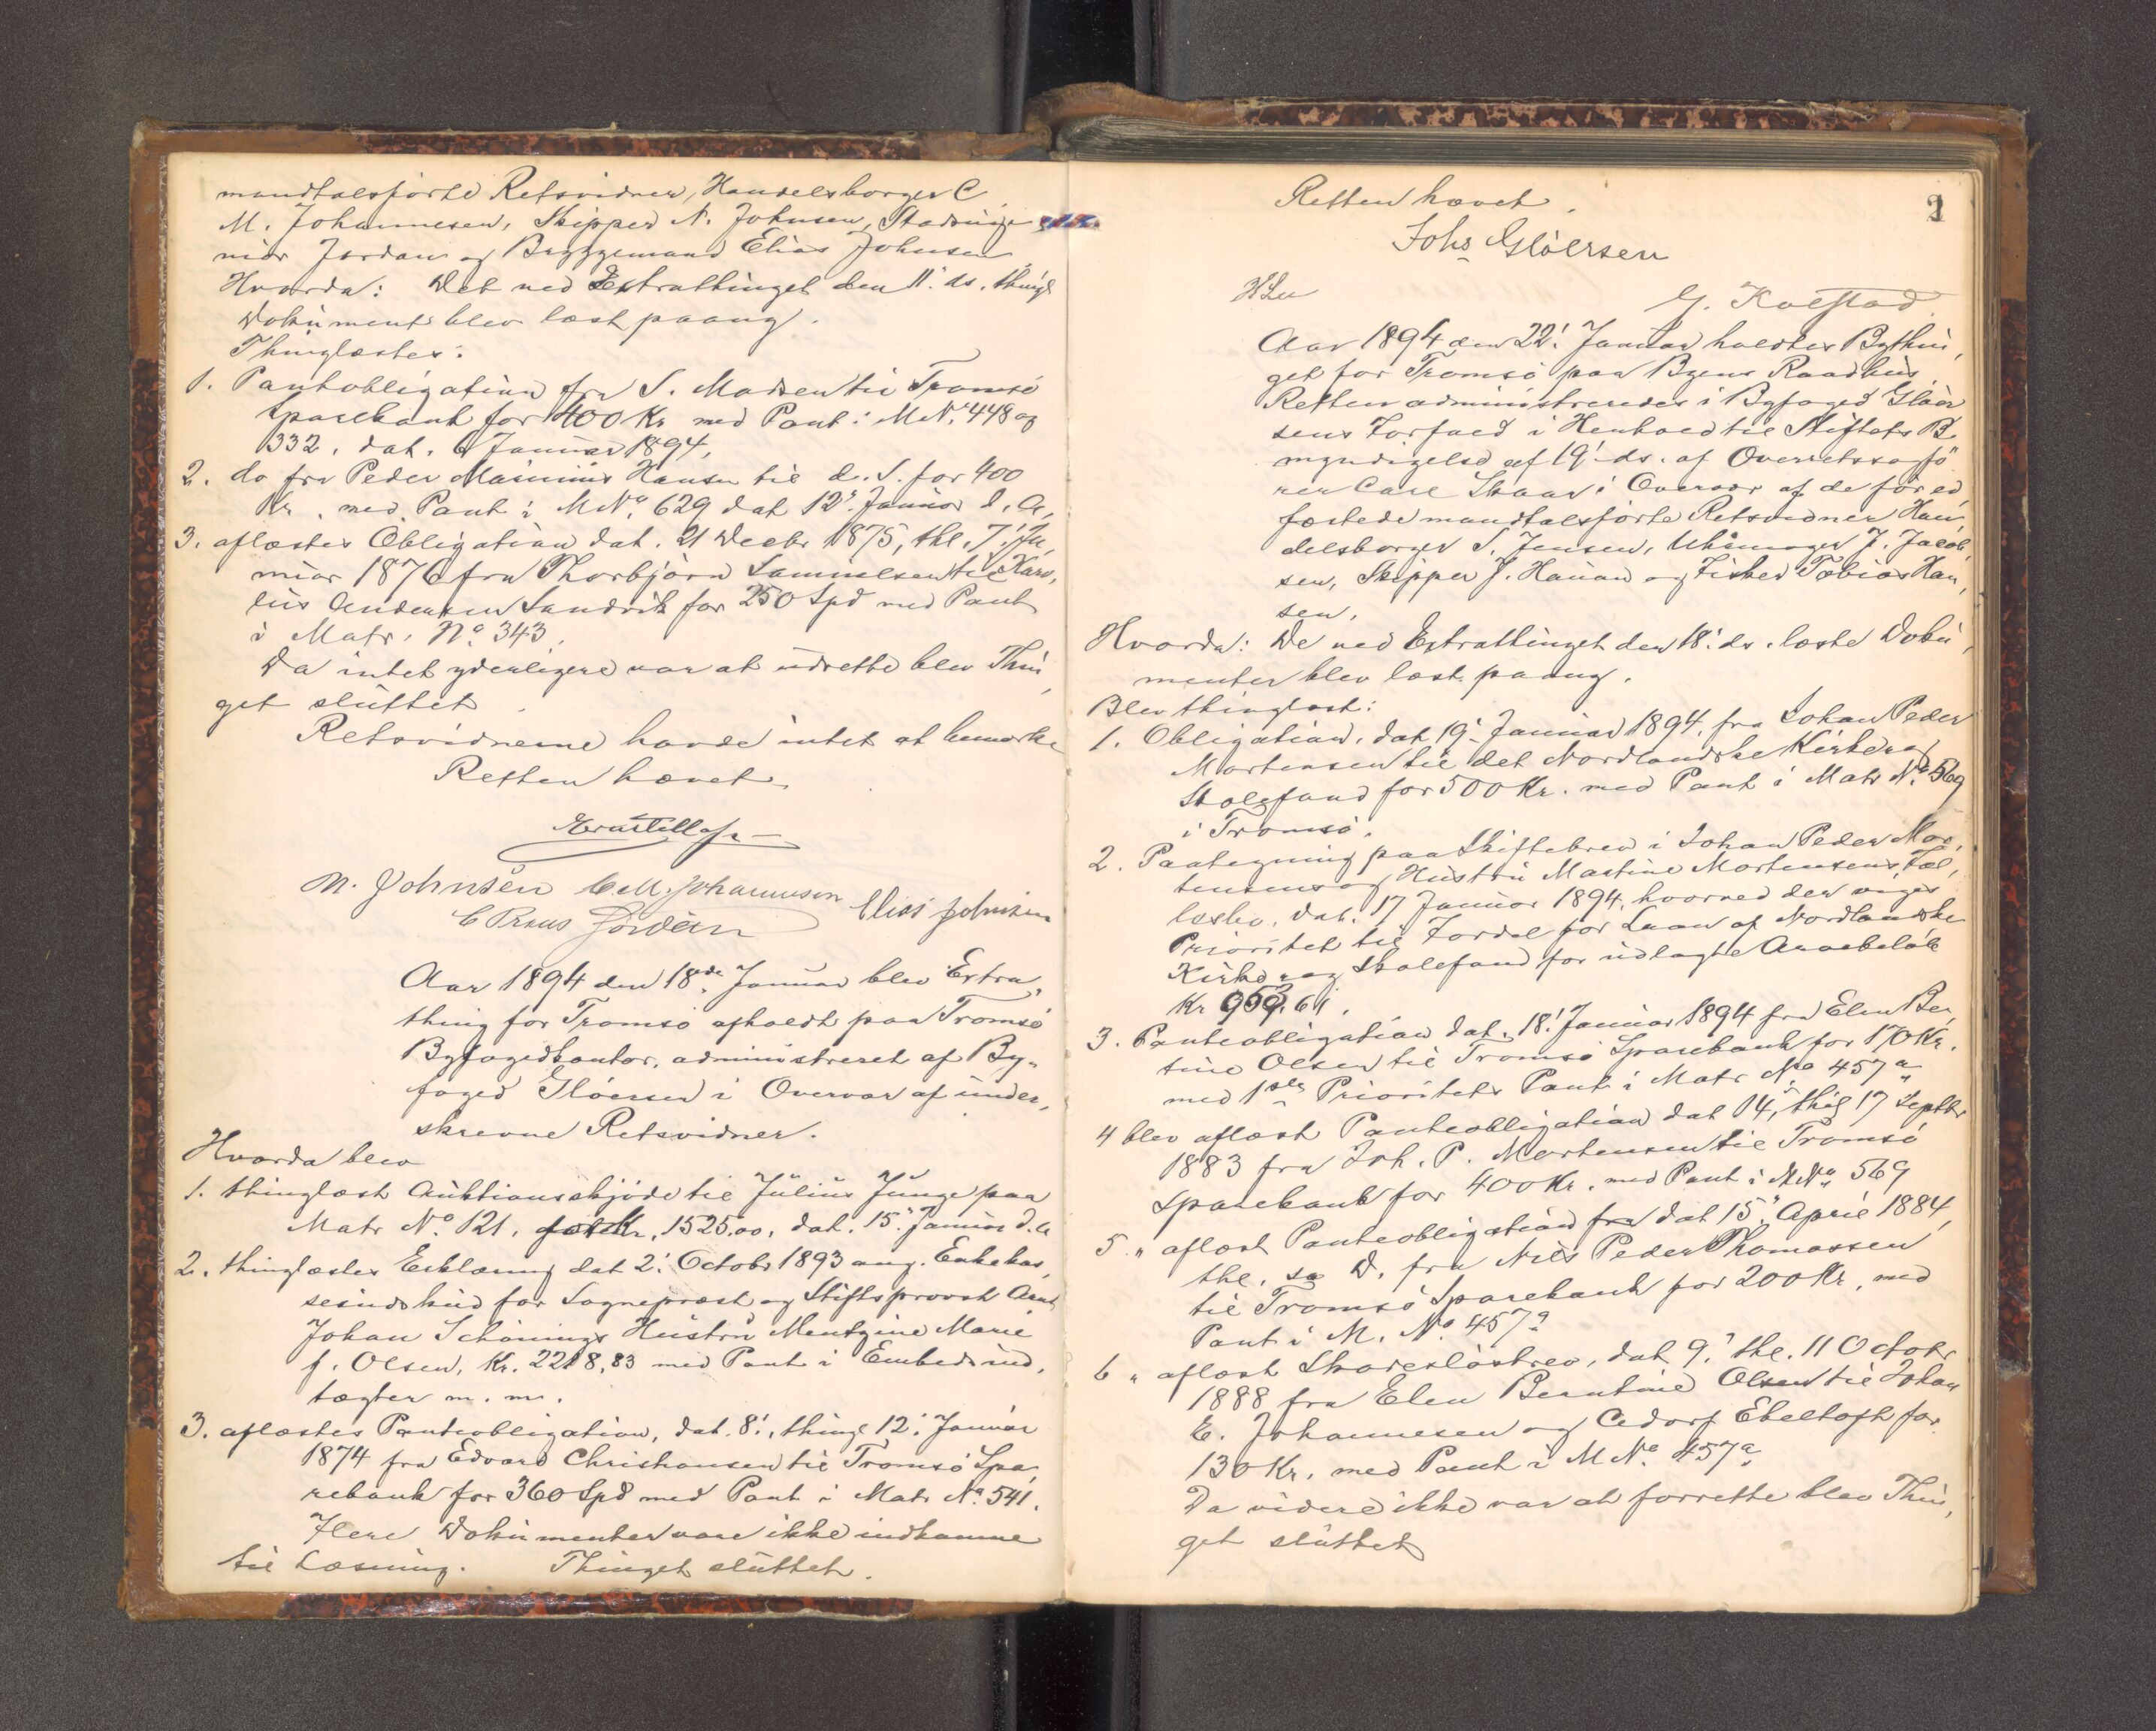 mandtalsførte Retsvidner, Handelsborger C
M. Johannesen, Skipper N. Johnsen, Stadsinge
niør Jordan og Bryggemand Elias Johnsen
Hvorda: Det ved Extrathinget den 11' ds. thingl
Dokument blev læst paany.
Thinglæstes:
1. Pantobligation fra S. Madsen til Tromsø
Sparebank for 1400 Kr med Pant i M.N. 448 og
332, dat. 6 Januar 1894,
2. do fra Peder Maximus Hansen til d. S. for 400
Kr. med Pant i M No 629 dat 12' Januar d. A.
3. aflæstes Obligation dat. 21 Decbr 1875, thl. 7' Ja,
nuar 1876 fra Thorbjørn Samuelsen til Karo,
lius Andersen Sandvik for 250 Spd med Pant
i Matr. No 343.
Da intet yderligere var at udrette blev Thin,
get sluttet
Retsvidnerne havde intet at bemærke
Retten hævet.
N. Johnsen C. M. Johannesen Elias Johnsen
C Prms Jordan
Aar 1894 den 18de Januar blev Extra,
thing for Tromsø afholdt paa Tromsø
Byfogedkontor, administreret af By-
foged Gløersen i Overvær af under,
skrevne Retsvidner.
Hvorda blev
1. thinglæst Auktionsskjøde til Julius Junge paa
Matr No 121, for Kr. 1525.00, dat. 15' Januar d. A
2. thinglæstes Erklæring dat 2' Octobr 1893 ang. Enkekas,
seindskud for Sognepræst og Stiftsprovst Arnt
Johan Schønings Hustru Mentzine Marie
f. Olsen, Kr. 2218,83 med Pant i Embedsind,
tægter m. m.
3. aflæstes Panteobligation, dat. 8', thingl 12' Januar
1874 fra Edvard Christiansen til Tromsø Spa,
rebank for 360 Spd med Pant i Matr No 541.
Flere Dokumenter vare ikke indkomne
til Læsning. Thinget sluttet.
Retten hævet.
Johs Gløersen
G. Kolstad
Aar 1894 den 22' Januar holdtes Bythin,
get for Tromsø paa Byens Raadhus
Retten administreredes i Byfoged Gløer
sens Forfald i Henhold til Stiftets B
myndigelse af 19' ds. af Overretssagfø
rer Carl Skaar i Overvær af de før ed,
fæstede mandtalsførte Retsvidner Han,
delsborger S. Jensen, Uhrmager J. Jacob,
sen, Skipper J. Hauan og Fisker Tobias Han,
sen.
Hvorda: De ved Extrathinget den 18' ds. læste Doku,
menter blev læst paany.
Blev thinglæst:
1. Obligation, dat 19' Januar 1894, fra Johan Peder
Mortensen til det Nordlandske Kirke og
Skolefond for 500 Kr. med Pant i Matr No. 569
i Tromsø.
2. Paategning paa Skiftebrev i Johan Peder Mor,
tensens og Hustru Martine Mortensens Fæl,
lesbo, dat. 17 Januar 1894, hvorved der viges
Prioritet til Fordel for Laan af Nordlandske
Kirke og Skolefond for udlagte Arvebeløb
Kr 953.61.
3. Panteobligation dat. 18' Januar 1894 fra Elen Ber
tine Olsen til Tromsø Sparebank for 170 Kr.
med 1ste Prioritets Pant i Matr No 457a
4 blev aflæst Panteobligation dat 14, thgl 17 Septbr
1883 fra Joh. P. Mortensen til Tromsø
Sparebank for 400 Kr. med Pant i M No 569
5 " aflæst Panteobligation fra dat 15' April 1884,
thl. s. D. fra Nils Peder Thomassen
til Tromsø Sparebank for 200 Kr, med
Pant i M. No 457a
6 " aflæst Skadesløsbrev, dat 9' thl. 11 Octobr
1888 fra Elen Berntine Olsen til Johan
E. Johannesen og Cedorf Ebeltoft for
130 Kr. med Pant i M No 457a
Da videre ikke var at forrette blev Thin,
get sluttet